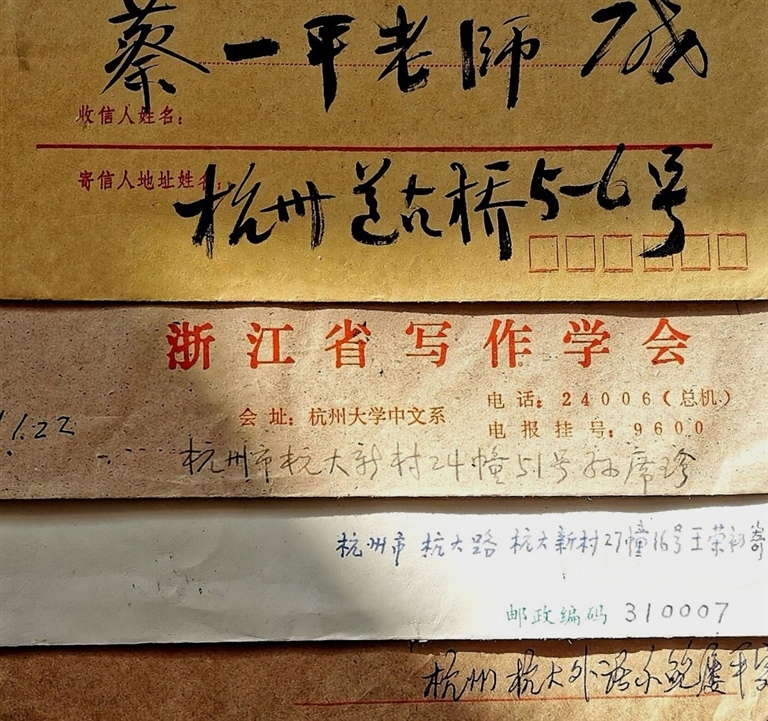 蔡一平老师 启
收信人姓名：
寄信人地址姓名：
杭州道古桥5-6号
浙江省写作学会
会址：杭州大学中文系
电话：24006（总机）
电报挂号：9600
1.22
杭州市杭大新村24幢51号孙席珍
杭州市 杭大路 杭大新村27幢16号王荣初寄
邮政编码 310007
杭州 杭大外语系鲍屡平